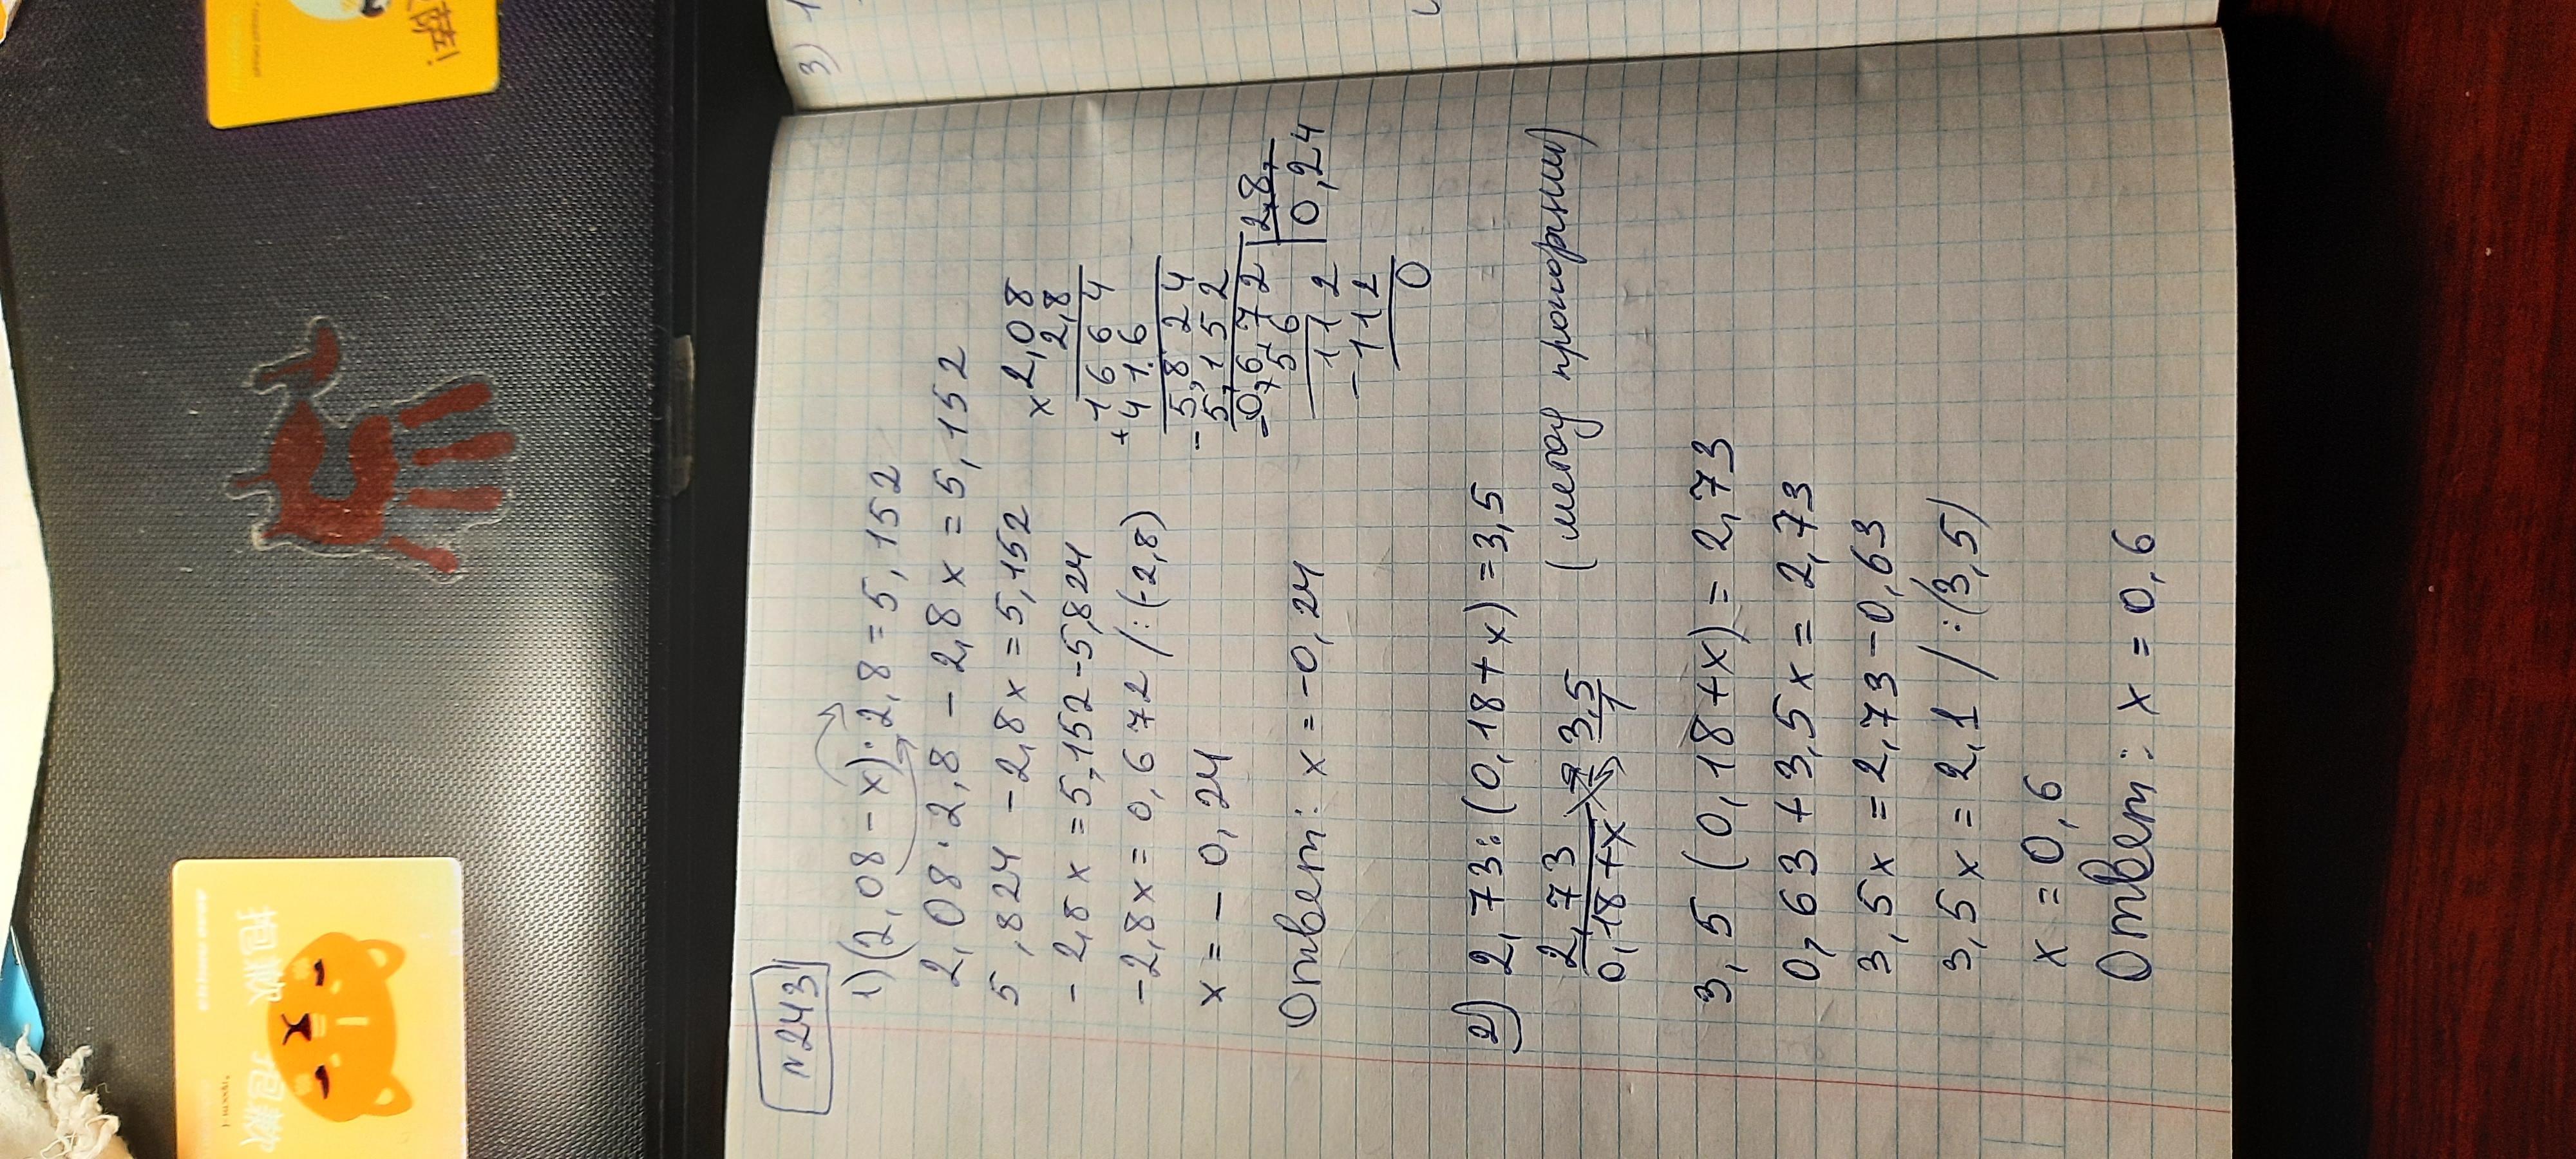 №243
1) (2,08 - x) · 2,8 = 5,152
2,08 · 2,8 - 2,8x = 5,152
5,824 - 2,8x = 5,152
- 2,8x = 5,152 - 5,824
-2,8x = 0,672 /: (-2,8)
x = - 0,24
Ответ: x = -0,24
× 2,08
2,8
1664
+ 416
5,824
- 5,152
0,672 | 2,8
- 56 | 0,24
112
- 112
0
2) 2,73 : (0,18 + x) = 3,5
2,73 / 0,18+x = 3,5 / 1 (метод пропорции)
3,5 (0,18 + x) = 2,73
0,63 + 3,5x = 2,73
3,5x = 2,73 - 0,63
3,5x = 2,1 /: (3,5)
x = 0,6
Ответ: x = 0,6
3) 1